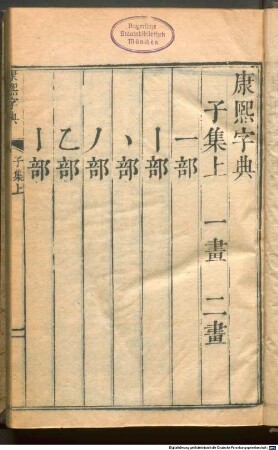 康熙字典
子集上 一畫 二畫
一部
丨部
丶部
丿部
乙部
亅部
康熙字典 子集上 二
Bayerische
Staatsbibliothek
München